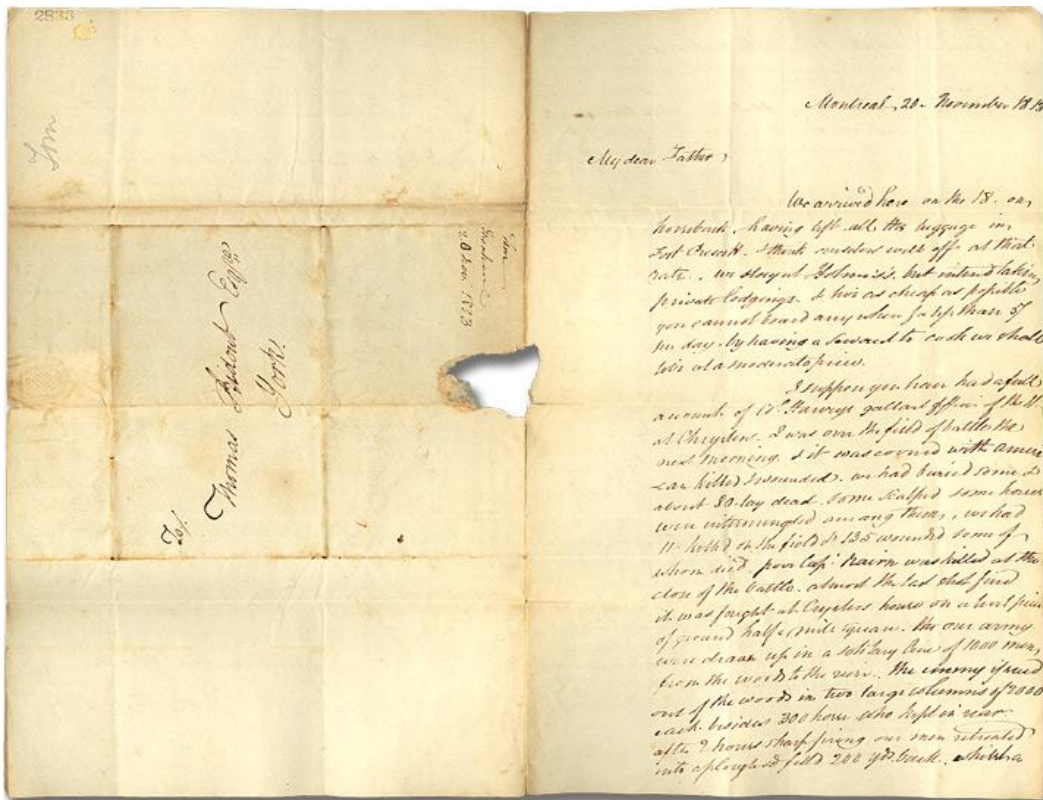 2833
Tom
To/.
Thomas Ridout Esqre
York.
20 Nov. 1813
Montreal, 20. November 181
My dear Father,
We arrived here on the 18. on
horseback, having left all the luggage in
Fort I think ourselves well off at that
rate. we stay at but intend taking
private lodgings. & live as cheap as possible
you cannot board any where for less than
per day. by having a servant to cook we shall
live at a moderate price.
I suppose you have had a full
account of Col. Harveys gallant affair of the 11.
at Chryslers. I was over the field of battle the
next morning, & it was covered with Ameri
can killed & wounded. we had buried some &
about 80 lay dead some scalped some horses
were intermingled among them, we had
11 killed on the field & 135 wounded some of
whom died poor Capt. Nairn was killed at the
close of the battle. almost the last shot fired
it was fought at Cryslers house on a level piece
of ground half a mile square. the our army
were drawn up in a solitary line of 1000 men,
from the woods to the river. the enemy issued
out of the woods in two large columns of 2000
each. besides 300 horse who kept in rear
after 2 hours sharp firing our men retreated
into a ploughed field 200 yds. back.